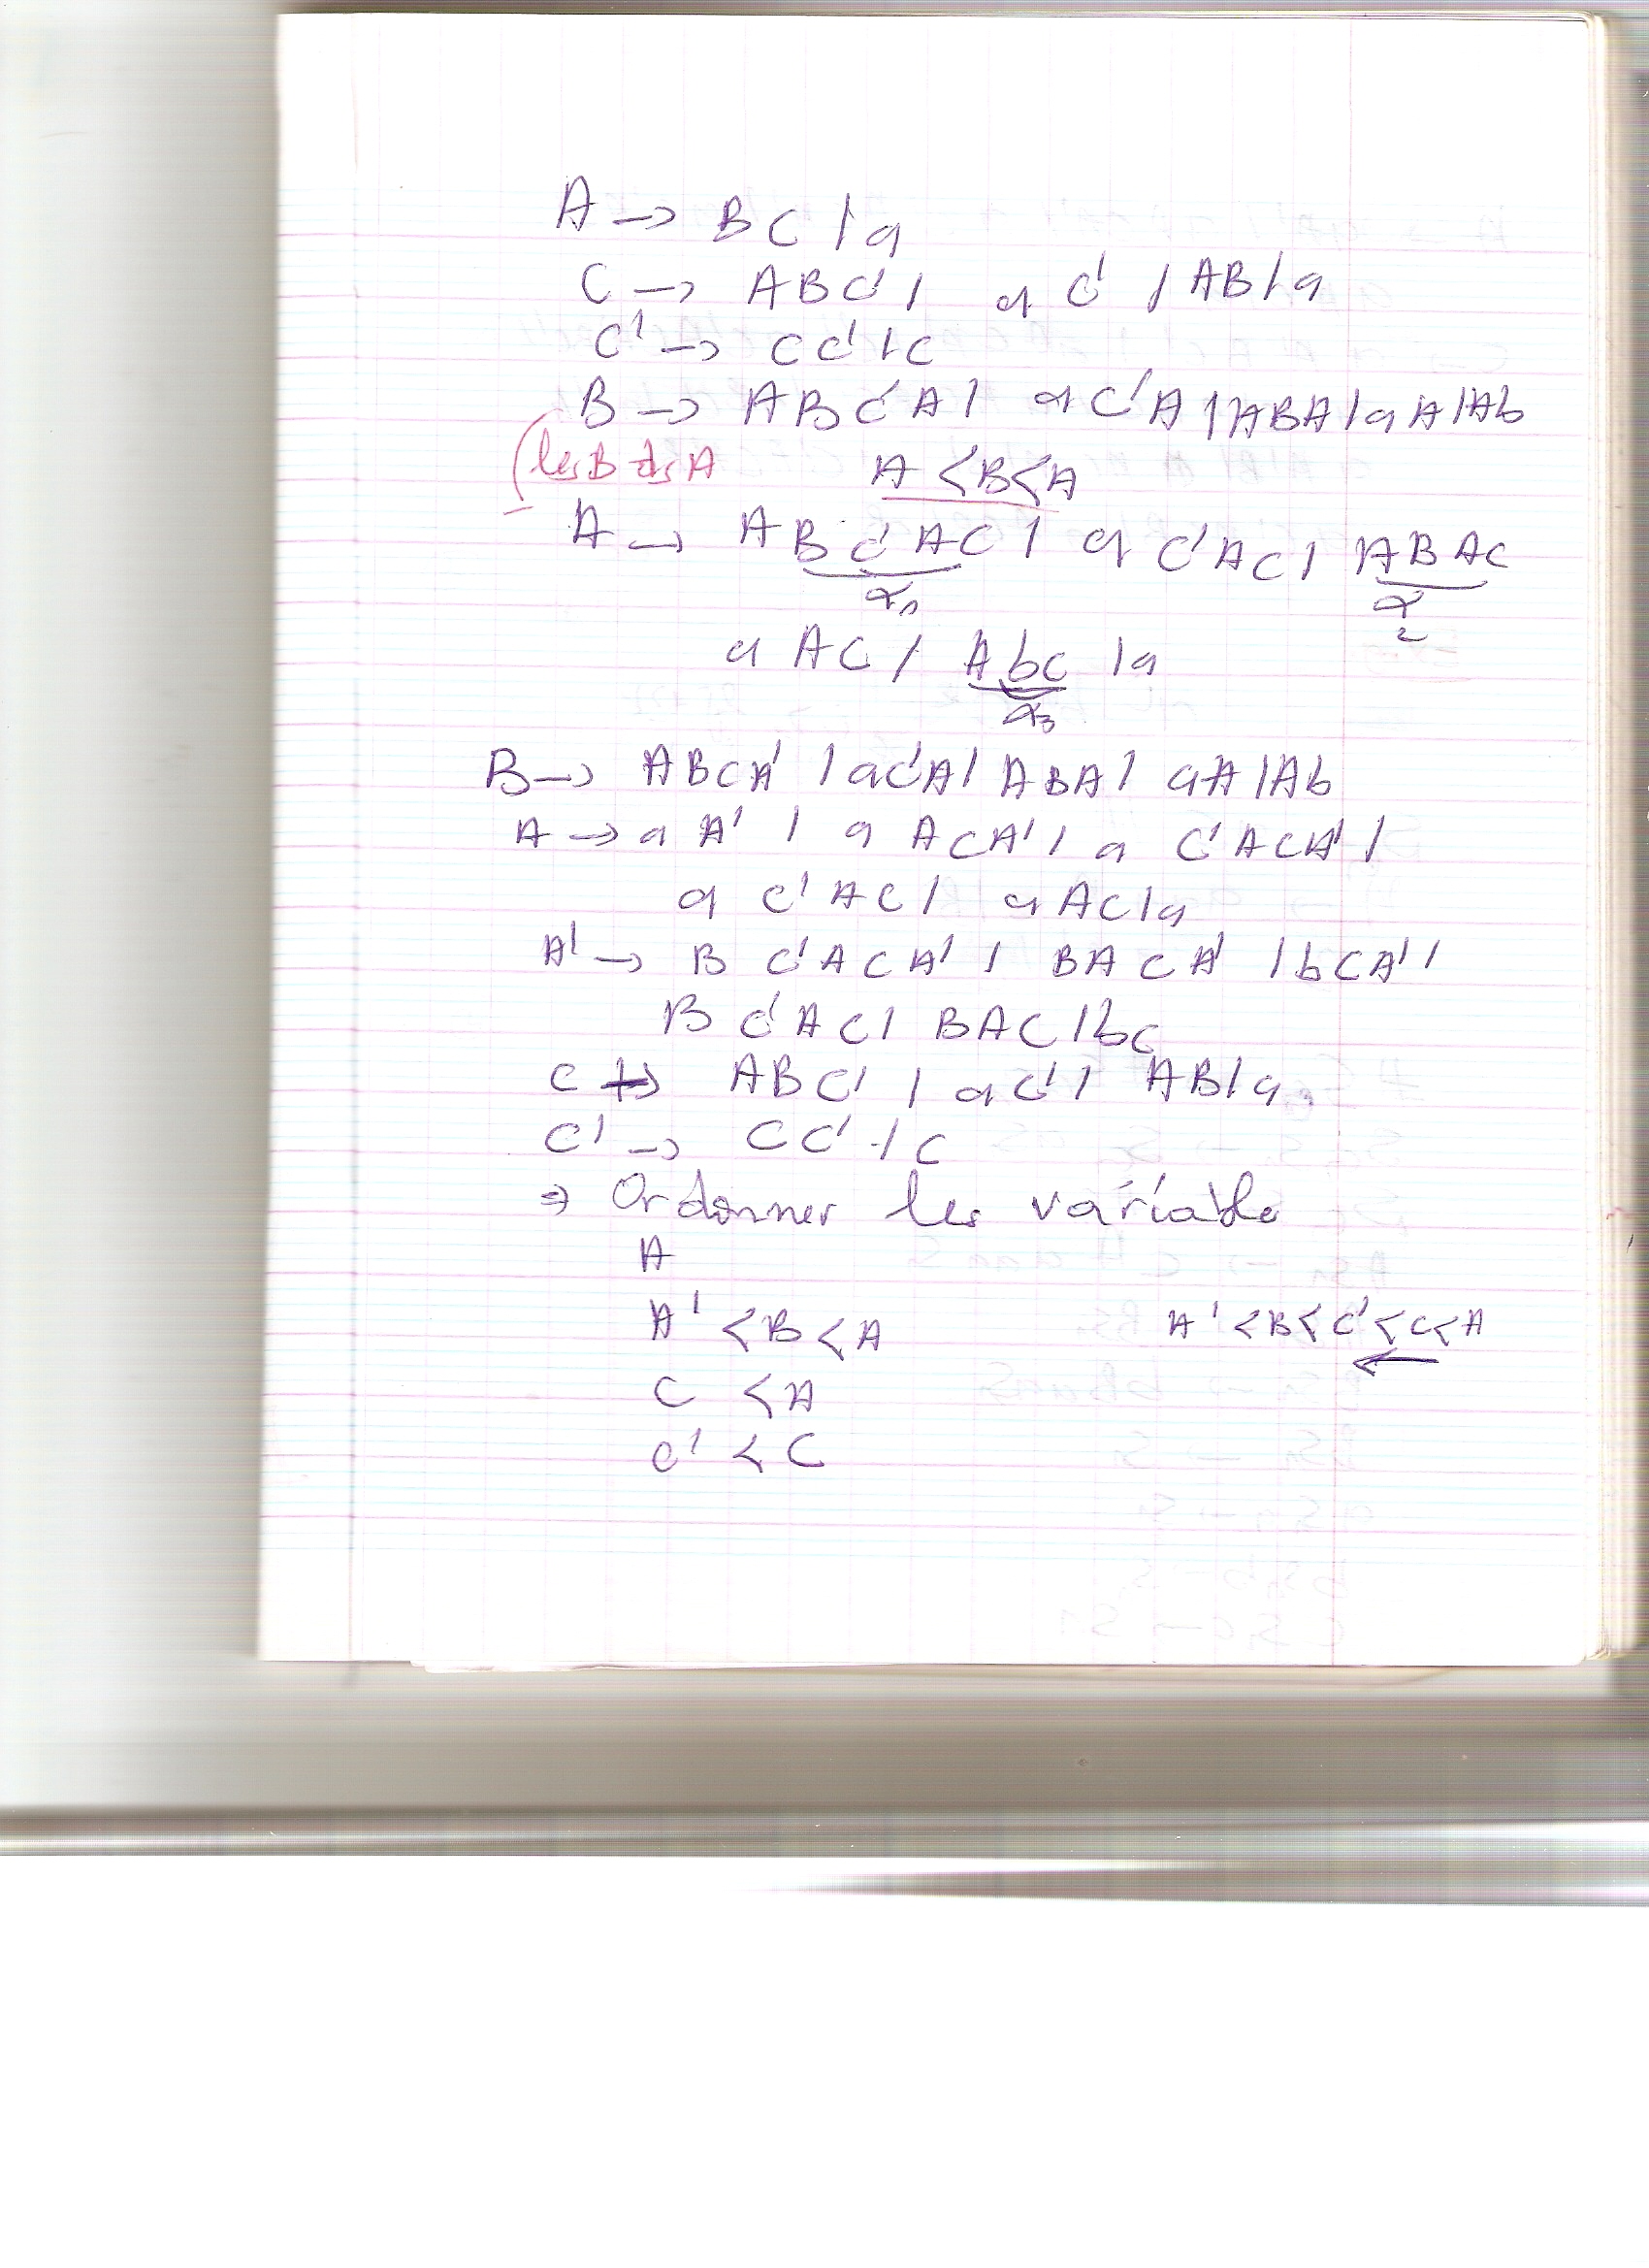 A → BC / a
C → ABC' / a C' / AB / a
C' → CC' / C
B → ABC'A / a C'A / ABA / a A / Ab
(les B ds A A < B < A
A → ABC'AC / a C'AC / ABAC
α1 α2
a AC / Abc / a
α3
B → ABCA' / aC'A / ABA / aA / Ab
A → a A' / a ACA' / a C'ACA' /
a C'AC / a AC / a
A' → B C'ACA' / BACA' / bCA' /
B C'AC / BAC / bC
C → ABC' / a C' / AB / a
C' → CC' / C
⇒ Ordonner les variable
A
A' < B < A A' < B < C' < C < A
C < A
C' < C